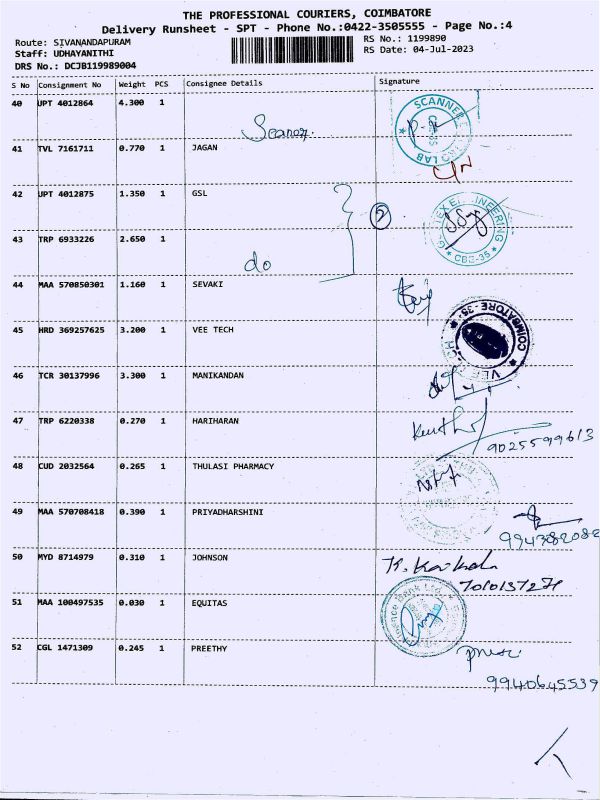 THE PROFESSIONAL COURIERS, COIMBATORE
Delivery Runsheet - SPT - Phone No.:0422-3505555 - Page No.:4
Route: SIVANANDAPURAM RS No.: 1199890
Staff: UDHAYANITHI RS Date: 04-Jul-2023
DRS No.: DCJB119989004
S No Consignment No Weight PCS Consignee Details Signature
40 UPT 4012864 4.300 1
41 TVL 7161711 0.770 1 JAGAN
42 UPT 4012875 1.350 1 GSL
43 TRP 6933226 2.650 1 do
CBE-35
44 MAA 570850301 1.160 1 SEVAKI
COIMBATORE - 35
45 HRD 369257625 3.200 1 VEE TECH
46 TCR 30137996 3.300 1 MANIKANDAN
47 TRP 6220338 0.270 1 HARIHARAN
9025599613
48 CUD 2032564 0.265 1 THULASI PHARMACY
49 MAA 570708418 0.390 1 PRIYADHARSHINI
50 MYD 8714979 0.310 1 JOHNSON
51 MAA 100497535 0.030 1 EQUITAS
52 CGL 1471309 0.245 1 PREETHY
9940645539